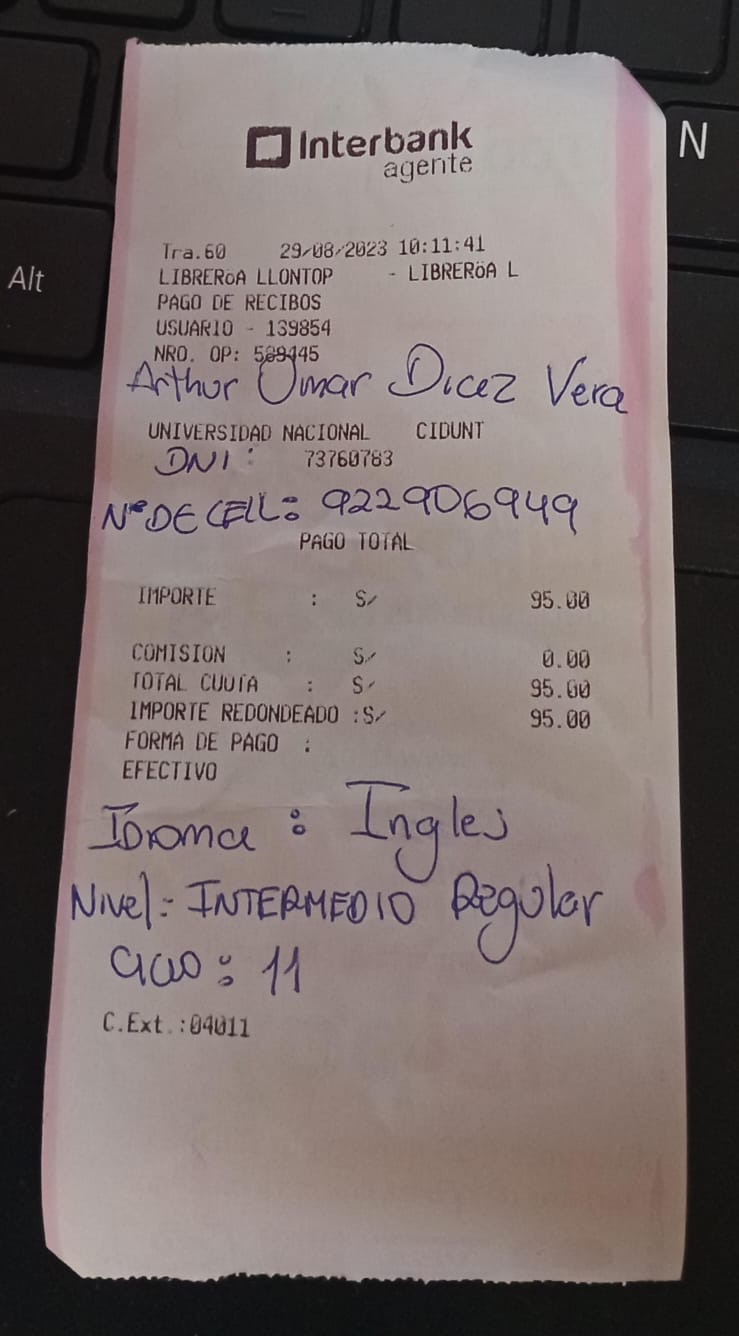 Interbank
agente
Tra.60 29/08/2023 10:11:41
LIBRERöA LLONTOP - LIBRERöA L
PAGO DE RECIBOS
USUARIO - 139854
NRO. OP:
Arthur Omar Vera
UNIVERSIDAD NACIONAL CIDUNT
DNI: 73760783
N° DE CELL: 922906949
PAGO TOTAL
IMPORTE : S/ 95.00
COMISION : S/ 0.00
TOTAL CUOTA : S/ 95.00
IMPORTE REDONDEADO :S/ 95.00
FORMA DE PAGO :
EFECTIVO
Idioma : Ingles
Nivel: INTERMEDIO Regular
Ciclo : 11
C.Ext.:04011
N
Alt